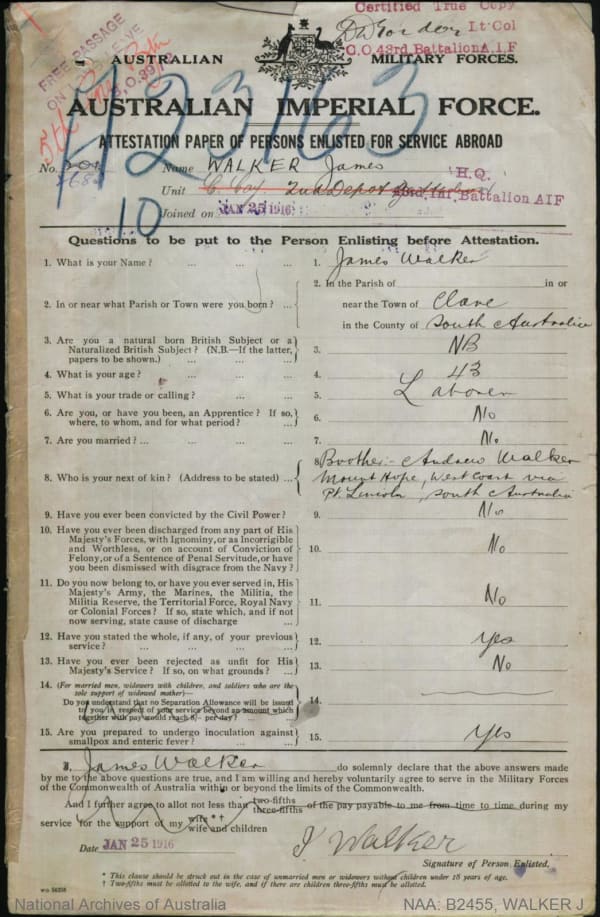 Certified True Copy
Lt Col
C.O. 43rd Battalion A.I.F
FREE PASSAGE
AUSTRALIAN MILITARY FORCES.
5th
12363
AUSTRALIAN IMPERIAL FORCE.
ATTESTATION PAPER OF PERSONS ENLISTED FOR SERVICE ABROAD
No. Name WALKER James
H.Q.
Unit C Coy. 2nd Depot Battalion Battalion AIF
10
Joined on JAN 25 1916
Questions to be put to the Person Enlisting before Attestation.
1. What is your Name? ... ... ... 1. James Walker
2. In the Parish of in or
2. In or near what Parish or Town were you born? ... near the Town of Clare
in the County of South Australia
3. Are you a natural born British Subject or a
Naturalized British Subject? (N.B.—If the latter,
papers to be shown.) ... ... ... 3. NB
4. What is your age? ... ... ... 4. 43
5. What is your trade or calling? ... ... 5. Laborer
6. Are you, or have you been, an Apprentice? If so,
where, to whom, and for what period? ... 6. No
7. Are you married? ... ... ... ... 7. No
8. Who is your next of kin? (Address to be stated) ... 8. Brother:- Andrew Walker
Mount Hope, West Coast via
Pt. Lincoln, South Australia
9. Have you ever been convicted by the Civil Power? 9. No
10. Have you ever been discharged from any part of His
Majesty's Forces, with Ignominy, or as Incorrigible
and Worthless, or on account of Conviction of
Felony, or of a Sentence of Penal Servitude, or have
you been dismissed with disgrace from the Navy? 10. No
11. Do you now belong to, or have you ever served in, His
Majesty's Army, the Marines, the Militia, the
Militia Reserve, the Territorial Force, Royal Navy
or Colonial Forces? If so, state which, and if not
now serving, state cause of discharge ... 11. No
12. Have you stated the whole, if any, of your previous
service? ... ... ... ... 12. Yes
13. Have you ever been rejected as unfit for His
Majesty's Service? If so, on what grounds? ... 13. No
14. (For married men, widowers with children, and soldiers who are the
sole support of widowed mother)—
Do you understand that no Separation Allowance will be issued
to you in respect of your service beyond an amount which
together with pay would reach 8/- per day? ... ... 14.
15. Are you prepared to undergo inoculation against
smallpox and enteric fever? ... ... 15. Yes
I, James Walker do solemnly declare that the above answers made
by me to the above questions are true, and I am willing and hereby voluntarily agree to serve in the Military Forces
of the Commonwealth of Australia within or beyond the limits of the Commonwealth.
And I further agree to allot not less than two-fifths three-fifths of the pay payable to me from time to time during my
service for the support of my wife * † wife and children
Date JAN 25 1916 J Walker
Signature of Person Enlisted.
* This clause should be struck out in the case of unmarried men or widowers without children under 18 years of age.
† Two-fifths must be allotted to the wife, and if there are children three-fifths must be allotted.
National Archives of Australia NAA: B2455, WALKER J